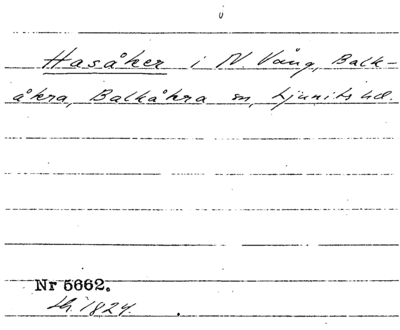 Hasåker i N. Vång, Balk-
åkra, Balkåkra sn, Ljunits hd.
Nr 5662.
1824.